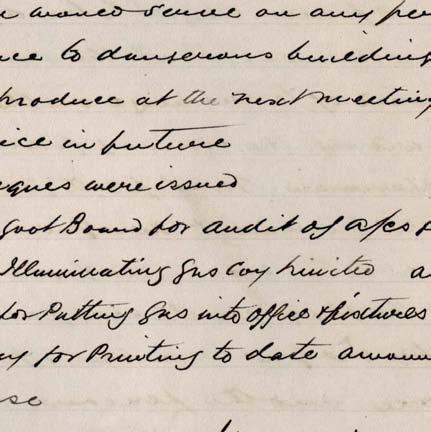 would serve on any
to dangerous building
produce at the next meeting
in future
were issued
Board for audit of a/cs
Illuminating Gas Coy Limited a
for Putting Gas into office & fixtures
for Printing to date amoun